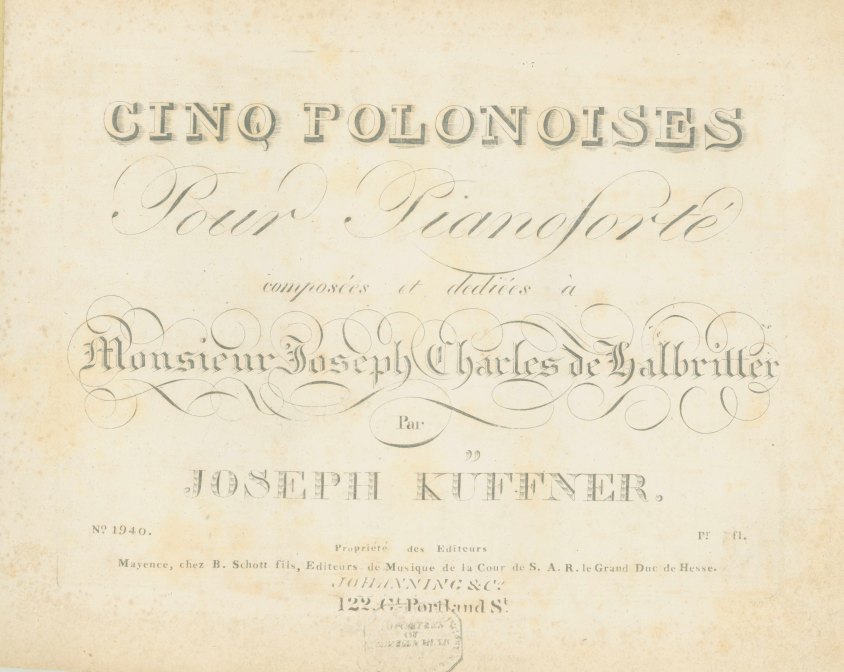 CINQ POLONOISES
Pour Pianoforté
composées et dediées à
Monsieur Joseph Charles de Halbritter
Par
JOSEPH KÜFFNER.
Nº 1940.
Pr. fl.
Propriété des Editeurs
Mayence, chez B. Schott fils, Editeurs de Musique de la Cour de S. A. R. le Grand Duc de Hesse.
JOHANNING & Co.
122. Gt. Portland St.
OF